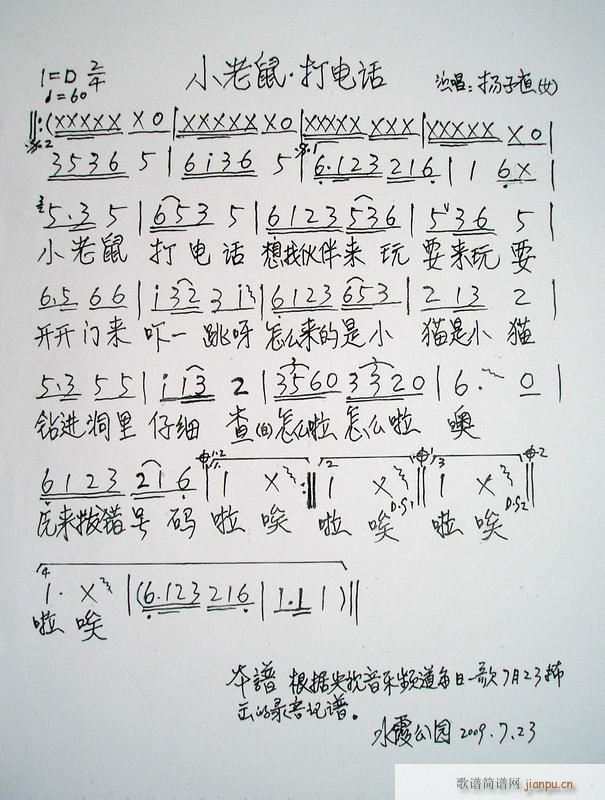 1=D 2/4
♩=60
小老鼠·打电话
演唱：杨子恒(女)
‖:(XXXXX X0|XXXXX X0|XXXXX XXX|XXXXX X0|
3536 5|6i36 5|6.123 216|1 6X|
5.3 5|653 5|6123 536|5 36 5|
小老鼠 打电话 想找伙伴来玩 耍来玩耍
6.5 66|i32 3 i3|6123 653|2 13 2|
开开门来 吓一跳呀 怎么来的是小 猫是小猫
5.3 55|i i3 2|3560 3320|6. 0|
钻进洞里 仔细 查(白)怎么啦 怎么啦 噢
6123 216|1 X:‖1 X‖1 X‖
原来拨错号码 啦 唉 啦 唉 啦 唉
1. X|(6.123 216|1.1 1)‖
啦 唉
本谱 根据央视音乐频道每日一歌7月23播
出的录音记谱。
水霞公园 2009.7.23
歌谱简谱网 jianpu.cn